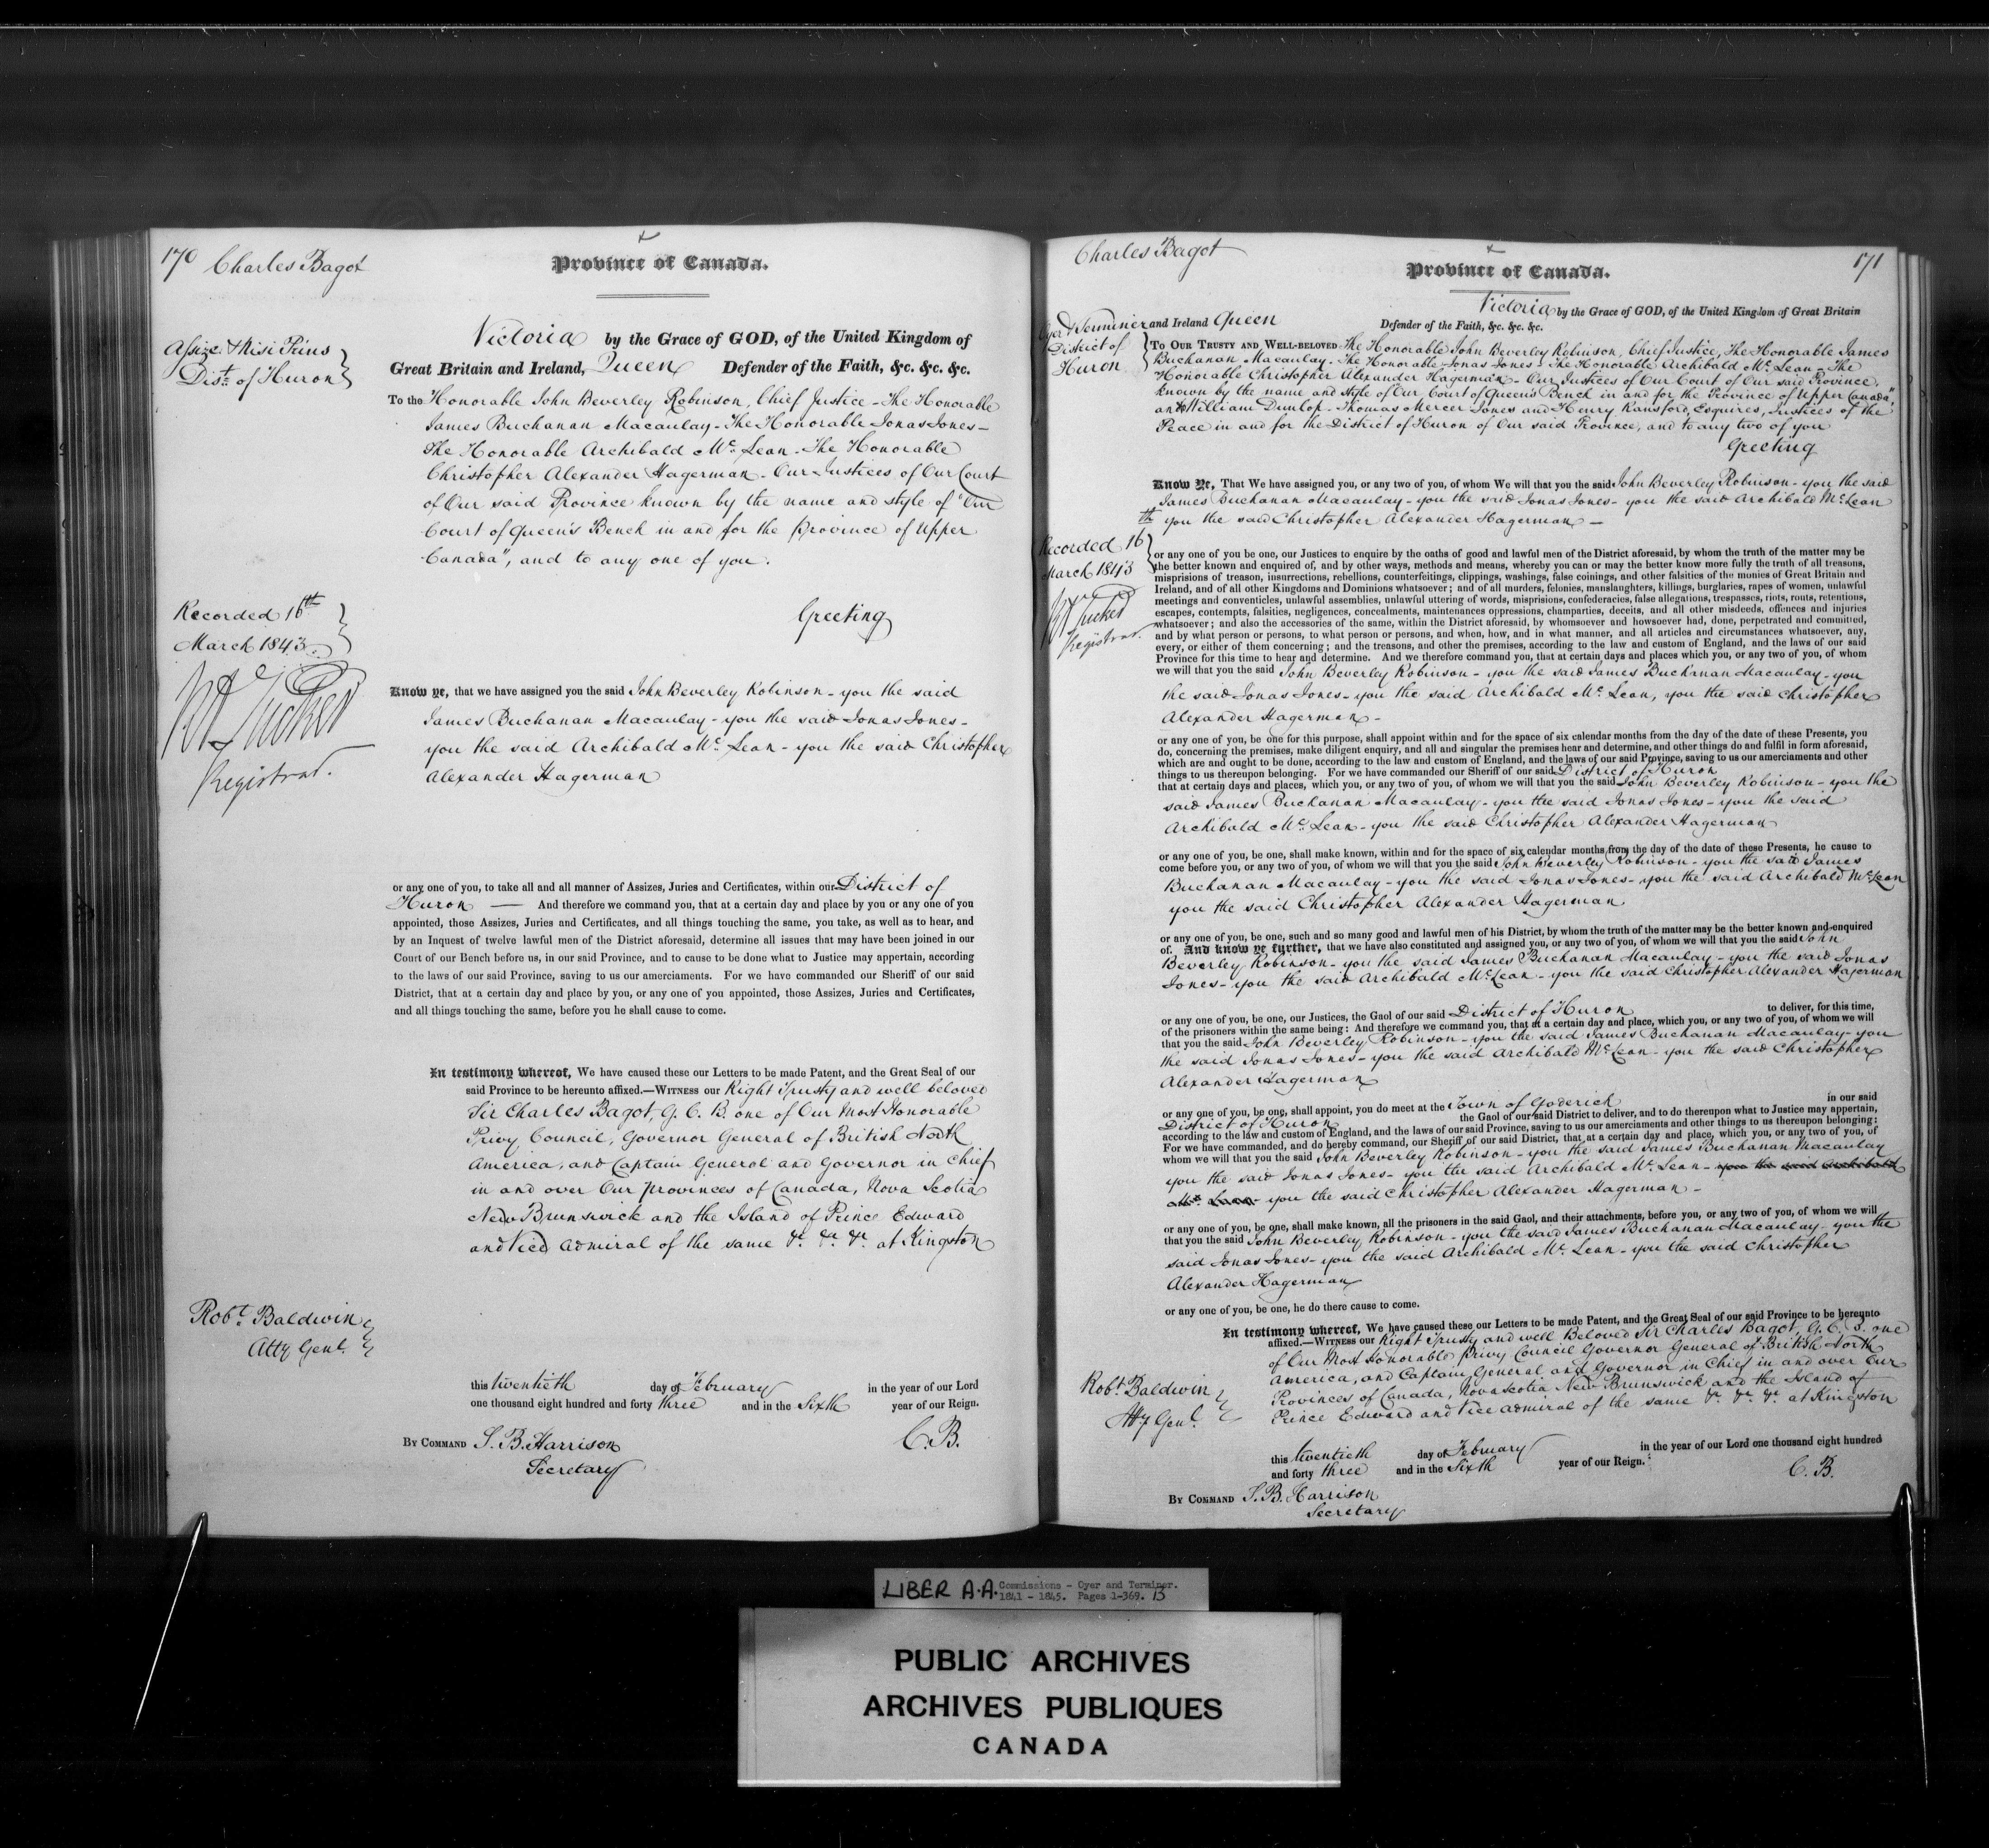 170 Charles Bagot
Province of Canada.
Assize & Nisi Prius
Dist. of Huron
Victoria by the Grace of GOD, of the United Kingdom of
Great Britain and Ireland, Queen Defender of the Faith, &c. &c. &c.
To the Honorable John Beverley Robinson, Chief Justice - The Honorable
James Buchanan Macaulay - The Honorable Jonas Jones -
The Honorable Archibald Mc. Lean - The Honorable
Christopher Alexander Hagerman - Our Justices of Our Court
of Our said Province known by the name and style of "Our
Court of Queen's Bench in and for the Province of Upper
Canada", and to any one of you.
Greeting
Recorded 16th
March 1843.
Tucker
Registrar.
Know ye, that we have assigned you the said John Beverley Robinson - you the said
James Buchanan Macaulay - you the said Jonas Jones -
you the said Archibald Mc. Lean - you the said Christopher
Alexander Hagerman
or any one of you, to take all and all manner of Assizes, Juries and Certificates, within our District of
Huron — And therefore we command you, that at a certain day and place by you or any one of you
appointed, those Assizes, Juries and Certificates, and all things touching the same, you take, as well as to hear, and
by an Inquest of twelve lawful men of the District aforesaid, determine all issues that may have been joined in our
Court of our Bench before us, in our said Province, and to cause to be done what to Justice may appertain, according
to the laws of our said Province, saving to us our amerciaments. For we have commanded our Sheriff of our said
District, that at a certain day and place by you, or any one of you appointed, those Assizes, Juries and Certificates,
and all things touching the same, before you he shall cause to come.
In testimony whereof, We have caused these our Letters to be made Patent, and the Great Seal of our
said Province to be hereunto affixed.—WITNESS our Right Trusty and well beloved
Sir Charles Bagot, G. C. B. one of Our Most Honorable
Privy Council, Governor General of British North
America, and Captain General and Governor in Chief
in and over Our Provinces of Canada, Nova Scotia
New Brunswick and the Island of Prince Edward
and Vice Admiral of the same &c. &c. &c. at Kingston
Robt. Baldwin
Atty Genl.
this twentieth day of February in the year of our Lord
one thousand eight hundred and forty three and in the Sixth year of our Reign.
C.B.
BY COMMAND S. B. Harrison
Secretary
Charles Bagot
171
Province of Canada.
Victoria by the Grace of GOD, of the United Kingdom of Great Britain
and Ireland Queen Defender of the Faith, &c. &c. &c.
Oyer & Terminer
District of
Huron
TO OUR TRUSTY AND WELL-BELOVED The Honorable John Beverley Robinson, Chief Justice, The Honorable James
Buchanan Macaulay - The Honorable Jonas Jones - The Honorable Archibald Mc. Lean - The
Honorable Christopher Alexander Hagerman - Our Justices of Our Court of Our said Province,
known by the name and style of Our Court of Queen's Bench in and for the Province of Upper Canada",
and to William Dunlop - Thomas Mercer Jones and Henry Ransford, Esquires, Justices of the
Peace in and for the District of Huron of Our said Province, and to any two of you
Greeting
Know Ye, That We have assigned you, or any two of you, of whom We will that you the said John Beverley Robinson - you the said
James Buchanan Macaulay - you the said Jonas Jones - you the said Archibald Mc. Lean
you the said Christopher Alexander Hagerman —
Recorded 16th
March 1843
Tucker
Registrar.
or any one of you be one, our Justices to enquire by the oaths of good and lawful men of the District aforesaid, by whom the truth of the matter may be
the better known and enquired of, and by other ways, methods and means, whereby you can or may the better know more fully the truth of all treasons,
misprisions of treason, insurrections, rebellions, counterfeitings, clippings, washings, false coinings, and other falsities of the monies of Great Britain and
Ireland, and of all other Kingdoms and Dominions whatsoever; and of all murders, felonies, manslaughters, killings, burglaries, rapes of women, unlawful
meetings and conventicles, unlawful assemblies, unlawful uttering of words, misprisions, confederacies, false allegations, trespasses, riots, routs, retentions,
escapes, contempts, falsities, negligences, concealments, maintenances oppressions, champarties, deceits, and all other misdeeds, offences and injuries
whatsoever; and also the accessories of the same, within the District aforesaid, by whomsoever and howsoever had, done, perpetrated and committed,
and by what person or persons, to what person or persons, and when, how, and in what manner, and all articles and circumstances whatsoever, any,
every, or either of them concerning; and the treasons, and other the premises, according to the law and custom of England, and the laws of our said
Province for this time to hear and determine. And we therefore command you, that at certain days and places which you, or any two of you, of whom
we will that you the said John Beverley Robinson - you the said James Buchanan Macaulay - you
the said Jonas Jones - you the said Archibald Mc. Lean, you the said Christopher
Alexander Hagerman -
or any one of you, be one for this purpose, shall appoint within and for the space of six calendar months from the day of the date of these Presents, you
do, concerning the premises, make diligent enquiry, and all and singular the premises hear and determine, and other things do and fulfil in form aforesaid,
which are and ought to be done, according to the law and custom of England, and the laws of our said Province, saving to us our amerciaments and other
things to us thereupon belonging. For we have commanded our Sheriff of our said District of Huron
that at certain days and places, which you, or any two of you, of whom we will that you the said John Beverley Robinson - you the
said James Buchanan Macaulay - you the said Jonas Jones - you the said
Archibald Mc. Lean - you the said Christopher Alexander Hagerman
or any one of you, be one, shall make known, within and for the space of six calendar months from the day of the date of these Presents, he cause to
come before you, or any two of you, of whom we will that you the said John Beverley Robinson - you the said James
Buchanan Macaulay - you the said Jonas Jones - you the said Archibald Mc. Lean
you the said Christopher Alexander Hagerman
or any one of you, be one, such and so many good and lawful men of his District, by whom the truth of the matter may be the better known and enquired
of. And know ye further, that we have also constituted and assigned you, or any two of you, of whom we will that you the said John
Beverley Robinson - you the said James Buchanan Macaulay - you the said Jonas
Jones - you the said Archibald Mc. Lean - you the said Christopher Alexander Hagerman
or any one of you, be one, our Justices, the Gaol of our said District of Huron to deliver, for this time,
of the prisoners within the same being: And therefore we command you, that at a certain day and place, which you, or any two of you, of whom we will
that you the said John Beverley Robinson - you the said James Buchanan Macaulay - you
the said Jonas Jones - you the said Archibald Mc. Lean - you the said Christopher
Alexander Hagerman
or any one of you, be one, shall appoint, you do meet at the Town of Goderich in our said
District of Huron the Gaol of our said District to deliver, and to do thereupon what to Justice may appertain,
according to the law and custom of England, and the laws of our said Province, saving to us our amerciaments and other things to us thereupon belonging:
For we have commanded, and do hereby command, our Sheriff of our said District, that at a certain day and place, which you, or any two of you, of
whom we will that you the said John Beverley Robinson - you the said James Buchanan Macaulay
you the said Jonas Jones - you the said Archibald Mc. Lean - you the said Archibald
Mc. Lean - you the said Christopher Alexander Hagerman -
or any one of you, be one, shall make known, all the prisoners in the said Gaol, and their attachments, before you, or any two of you, of whom we will
that you the said John Beverley Robinson - you the said James Buchanan Macaulay - you the
said Jonas Jones - you the said Archibald Mc. Lean - you the said Christopher
Alexander Hagerman
or any one of you, be one, he do there cause to come.
In testimony whereof, We have caused these our Letters to be made Patent, and the Great Seal of our said Province to be hereunto
affixed.—WITNESS our Right Trusty and well Beloved Sir Charles Bagot, G. C. B. one
of Our Most Honorable Privy Council Governor General of British North
America, and Captain General and Governor in Chief in and over Our
Provinces of Canada, Nova Scotia New Brunswick and the Island of
Prince Edward and Vice Admiral of the same &c. &c. &c. at Kingston
Robt. Baldwin
Atty Genl.
this twentieth day of February in the year of our Lord one thousand eight hundred
and forty three and in the Sixth year of our Reign.
C. B.
BY COMMAND S. B. Harrison
Secretary
LIBER A.A. Commissions - Oyer and Terminer.
1841 - 1845. Pages 1-369. B
PUBLIC ARCHIVES
ARCHIVES PUBLIQUES
CANADA